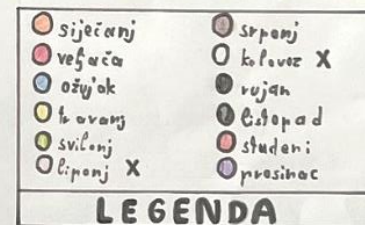 siječanj
veljača
ožujak
travanj
svibanj
lipanj X
srpanj
kolovoz X
rujan
listopad
studeni
prosinac
LEGENDA